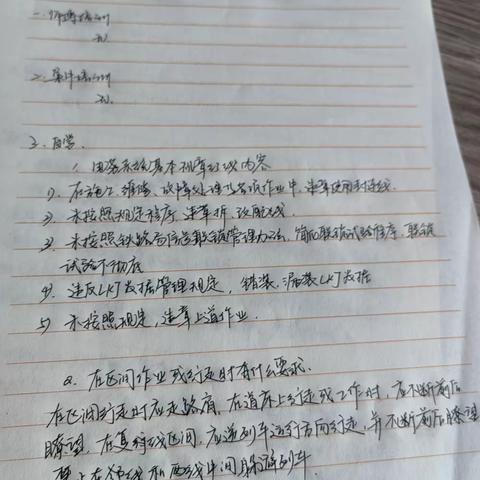 一. 师傅培训
无
二. 集中培训
无.
三. 自学.
1. 电务系统基本规章红线内容
1). 在施工、维修、故障处理及各项作业中, 违章使用封连线.
2). 未按照规定程序, 违章拆、改配线.
3). 未按照铁路局信号联锁管理办法, 简化联锁试验程序, 联锁
试验不彻底
4). 违反LKJ数据管理规定, 错装、漏装LKJ数据
5) 未按照规定, 违章上道作业.
2. 在区间作业或行走时有什么要求.
在区间行走时应走路肩, 在道床上行走或工作时, 应不断前后
瞭望, 在复线区间, 应逆列车运行方向行走, 并不断前后瞭望
禁止在邻线和两线中间躲避列车